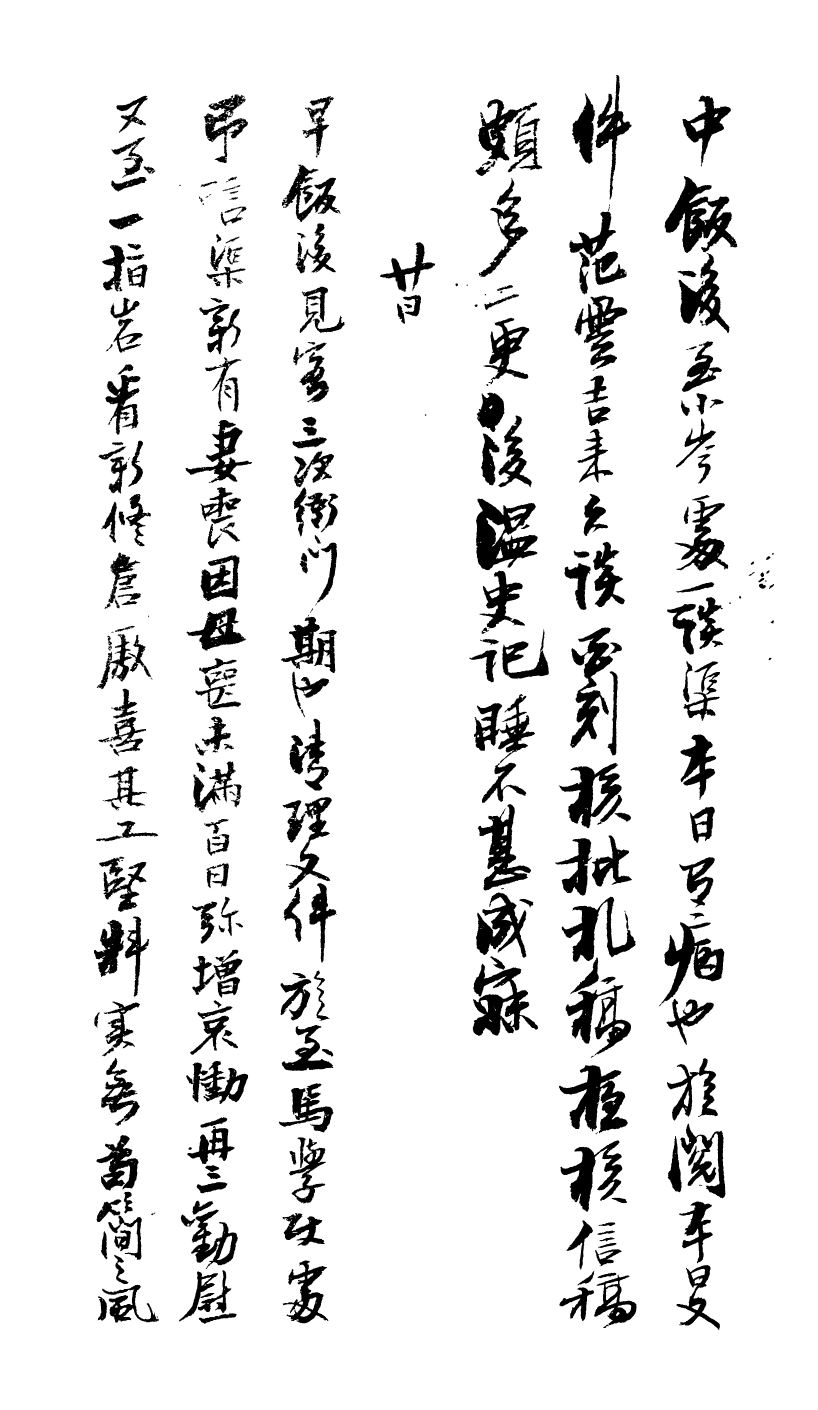 中飯後至小岑處一談渠本日有病也旋閱本日文
件范雲吉來久談酉刻核批札稿夜核信稿
頗多二更後溫史記睡不甚成寐
廿日
早飯後見客三次衙門期也清理文件旋至馬學使處
弔唁渠新有妻喪因母喪未滿百日弥增哀慟再三勸慰
又至一指岩看新修倉厫喜其工堅料實無苟簡之風